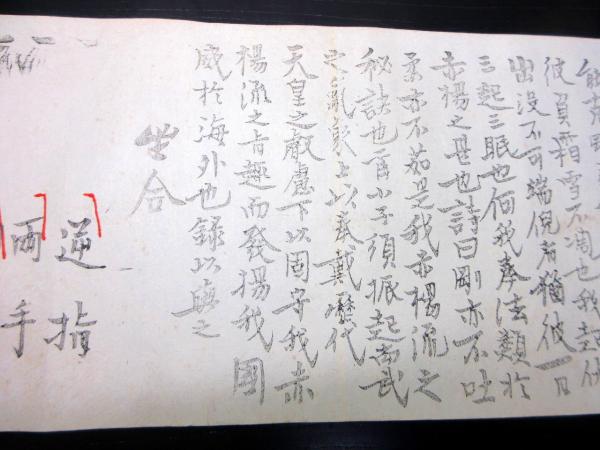 彼負霜雪不凋也我
出没不可端倪者猶彼一日
三起三眠也何我拳法類於
赤楊之甚也詩曰剛亦不吐
柔亦不茹是我赤楊流之
秘訣也小子須振起尚武
之氣象上以奉戴歷代
天皇之叡慮下以固守我赤
楊流之旨趣而發揚我國
威於海外也錄以與之
坐合
逆指
両手